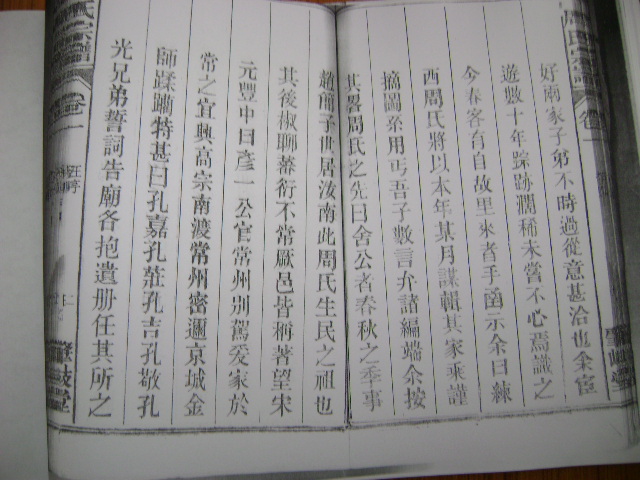 周氏宗譜 卷一
好兩家子弟不時過從意甚洽也余宦
遊數十年踪跡濶稀未嘗不心焉識之
今春客有自故里來者手函示余曰練
西周氏將以本年某月謀輯其家乘謹
摘圖系用丐吾子數言弁諸編端余按
其畧周氏之先曰舍公者春秋之季事
趙簡子世居汝南此周氏生民之祖也
其後椒聊蕃衍不常厥邑皆稱著望宋
元豐中曰彦一公官常州別駕爰家於
常之宜興高宗南渡常州密邇京城金
師蹂躪特甚曰孔嘉孔莊孔吉孔敬孔
光兄弟誓詞告廟各抱遺册任其所之
氏宗譜 卷一